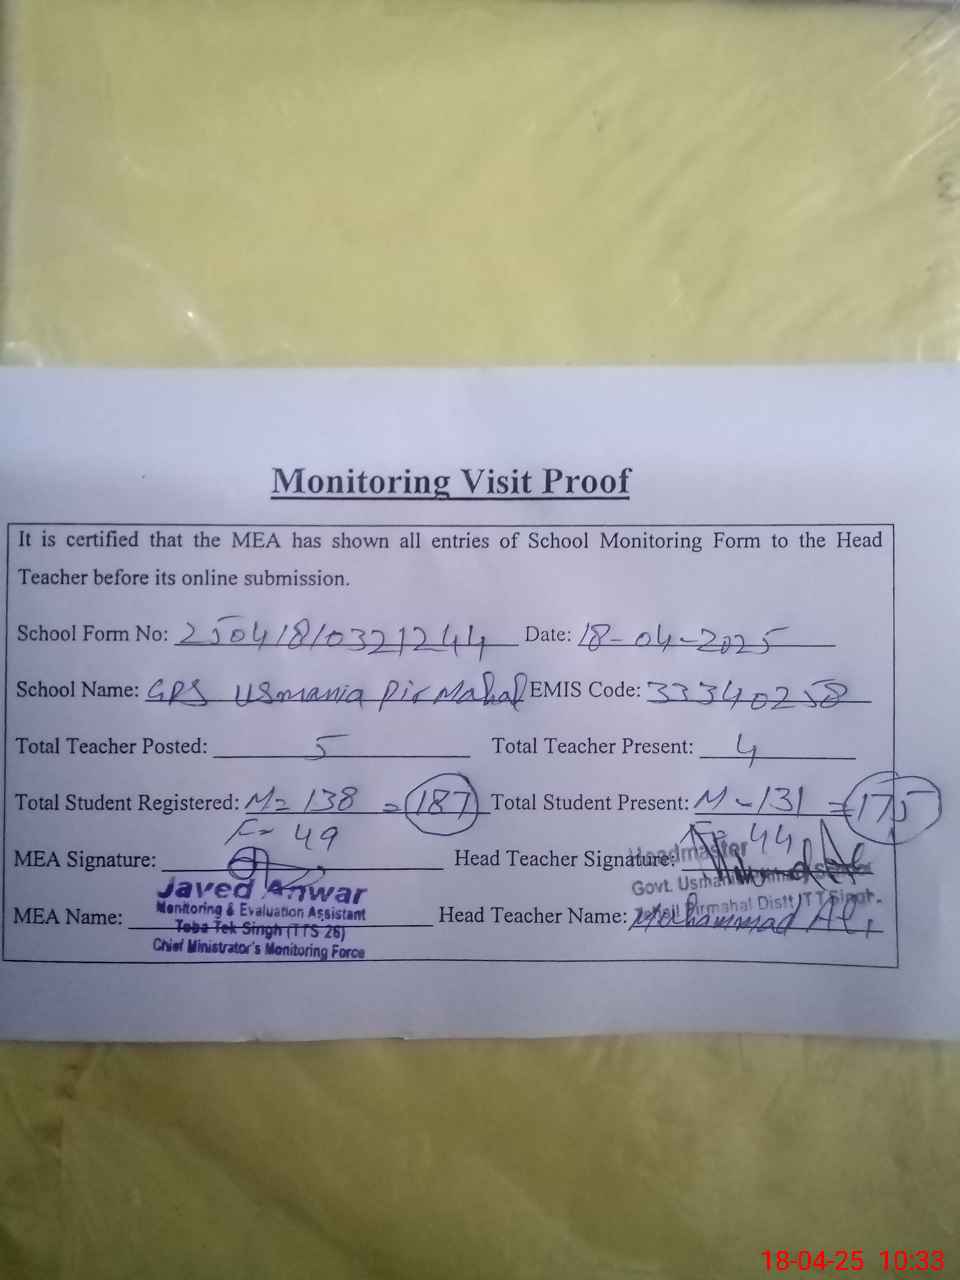 Monitoring Visit Proof
It is certified that the MEA has shown all entries of School Monitoring Form to the Head
Teacher before its online submission.
School Form No: 25041810321244 Date: 18-04-2025
School Name: GPS Usmania Pir Mahal EMIS Code: 33340258
Total Teacher Posted: 5 Total Teacher Present: 4
Total Student Registered: M= 138 = 187 Total Student Present: M - 131 = 175
F= 49 F= 44
MEA Signature: Head Teacher Signature:
Headmaster
Javed Anwar
Govt. Usmania
Monitoring & Evaluation Assistant
MEA Name: Head Teacher Name: Mohammad Ali
Pirmahal Distt TT Singh.
Toba Tek Singh (TTS 26)
Chief Ministrator's Monitoring Force
18-04-25 10:33